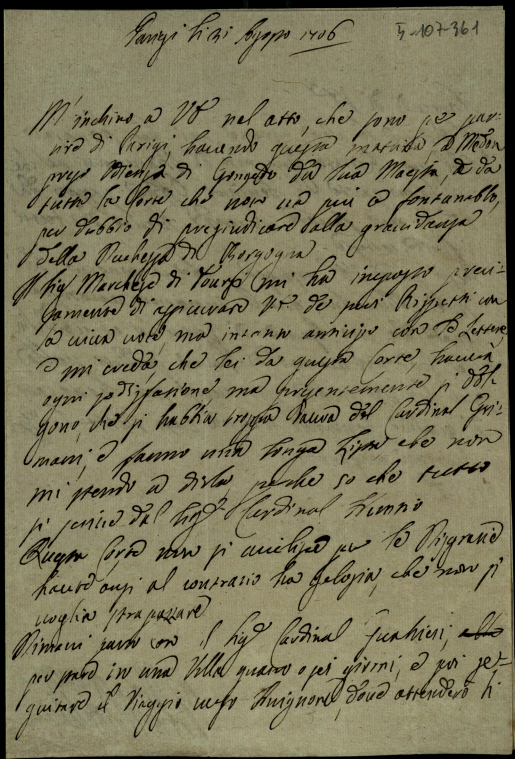 Parigi li 21 Agosto 1706
5-107-361
M'inchino a VE nel atto, che sono per par-
tire di Parigi, havendo questa matina, a Medon
preso udienza di Congedo da Sua Maestà, e da
tutta la Corte che non va più a fontanablò,
per dubbio di pregiudicare alla gravidanza
della Duchessa di Borgogna
Il Sig Marchese di Toursi mi ha imposto preci-
samente di assicurare VE de suoi Rispetti con
la viva voce ma intanto anticipo con le Lettere
e mi creda, che lei da questa Corte, haverà
ogni sodisfatione, ma urgentemente si dol-
gono, che si habbia troppa Paura del Cardinal Gri-
mani, e fanno una longa che non
mi stendo a dirla perche so che tutto
si scrive dal Sig Cardinal
Questa Corte non si per le
havute anzi al contrario ha gelosia, che non si
voglia strapazzare
Dimani parto con il Sig Cardinal Gualtieri,
per stare in una Villa quattro o sei giorni, e poi se-
guitare il Viaggio verso Avignone, dove attenderò li